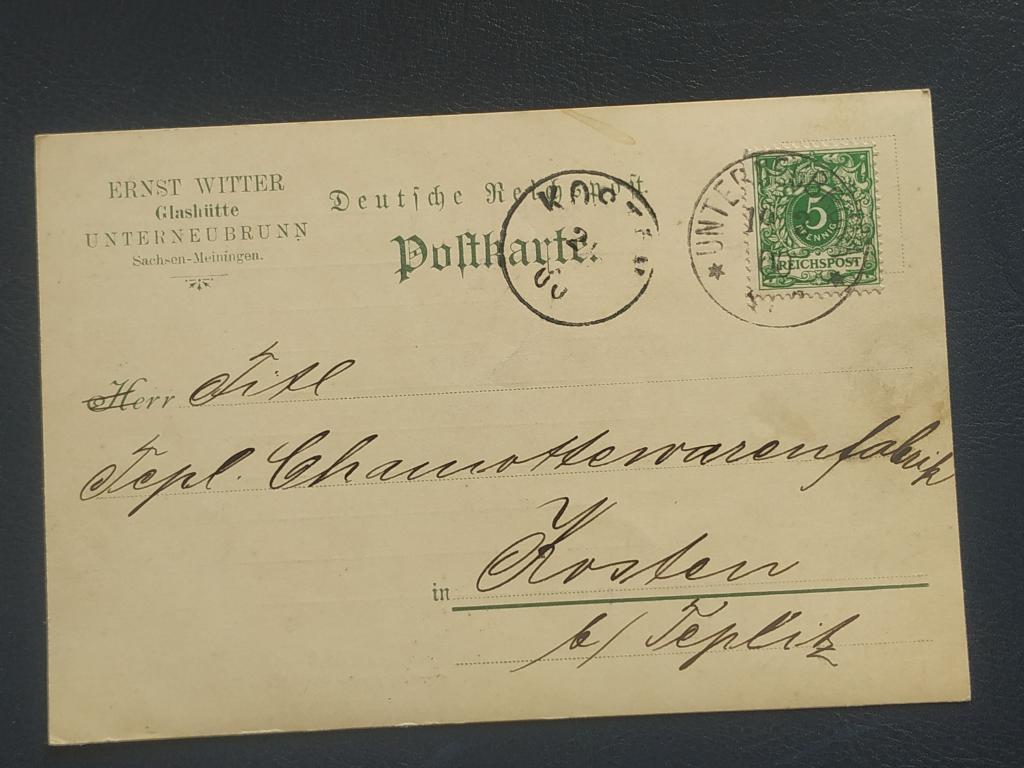 ERNST WITTER
Glashütte
UNTERNEUBRUNN
Sachsen-Meiningen.
Deutsche Reichspost.
Postkarte.
KOSTEN
5
PFENNIG
REICHSPOST
Herr Titl
Tepl. Chamottewarenfabrik
in Kosten
b/ Teplitz